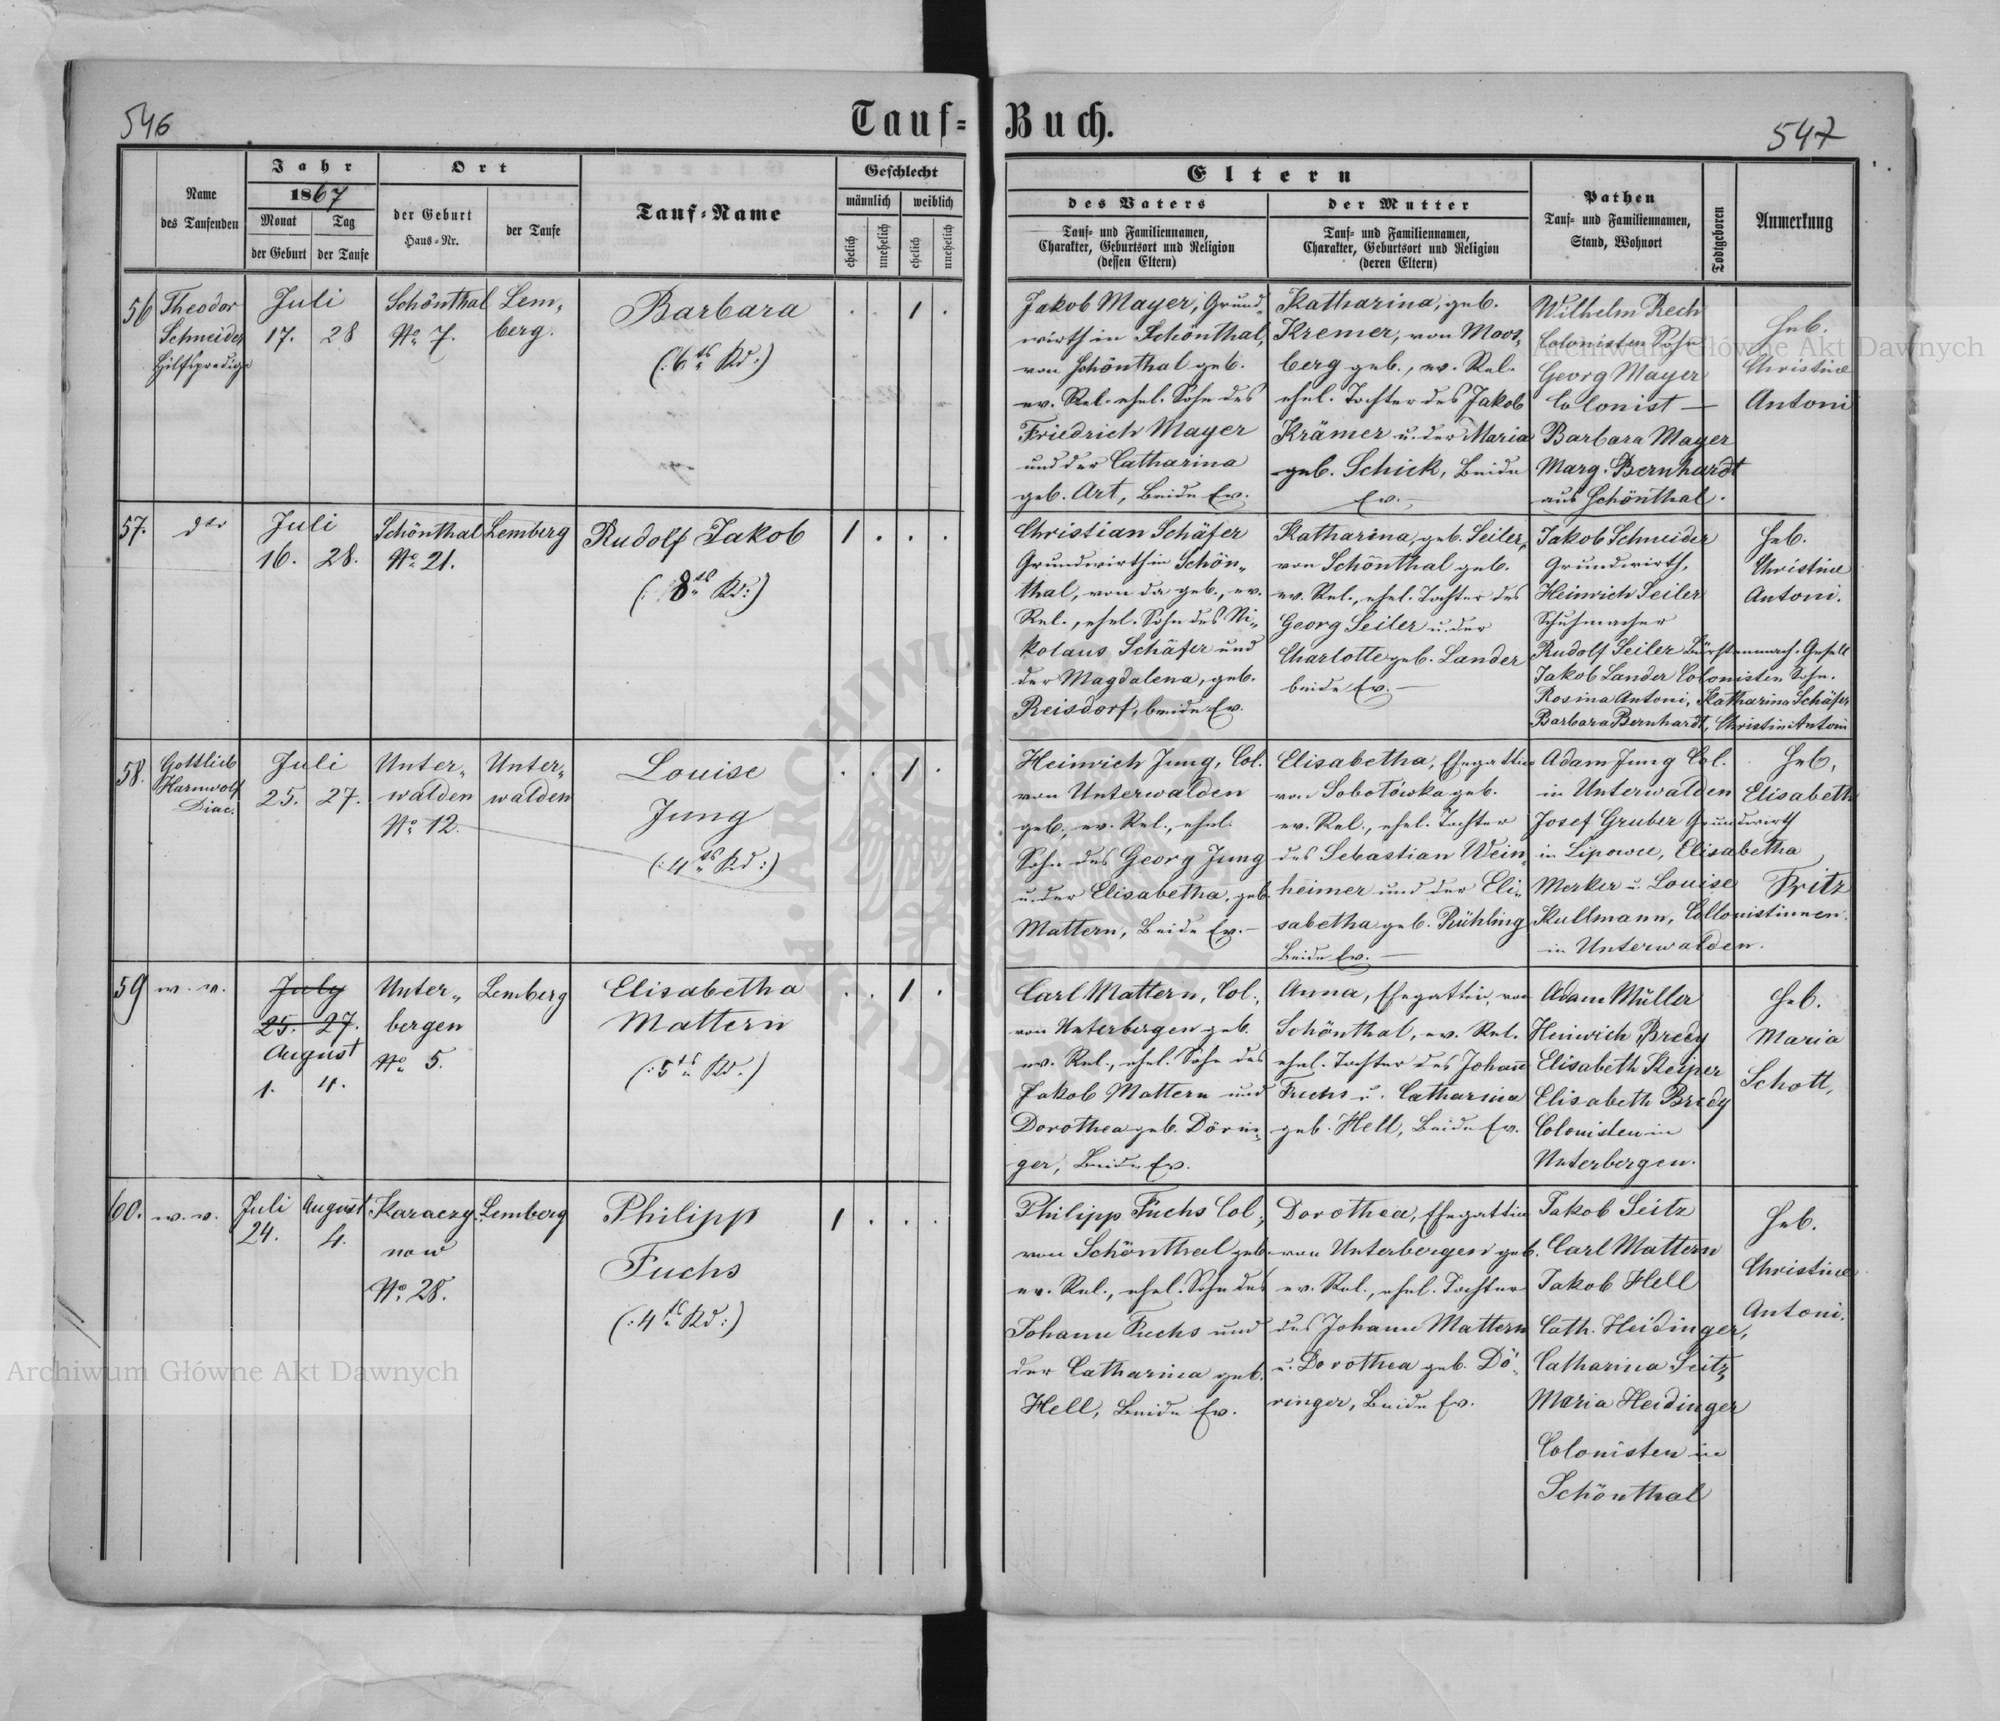 546
Tauf=
Buch.
547
Name
des Taufenden
Jahr
1867
Monat
Tag
der Geburt
der Taufe
Ort
der Geburt
Haus=Nr.
der Taufe
Tauf=Name
Geschlecht
männlich
weiblich
ehelich
unehelich
ehelich
unehelich
Eltern
des Vaters
Tauf= und Familiennamen,
Charakter, Geburtsort und Religion
(dessen Eltern)
der Mutter
Tauf= und Familiennamen,
Charakter, Geburtsort und Religion
(deren Eltern)
Pathen
Tauf= und Familiennamen,
Stand, Wohnort
Todtgeboren
Anmerkung
56
Theodor
Schneider
Hilfspredige
Juli
17. 28
Schönthal
No. 7.
Lem„
berg.
Barbara
(:6ts Kd.:)
. . 1 .
Jakob Mayer, Grund„
wirth in Schönthal,
von Schönthal geb.
ev. Rel. ehel. Sohn des
Friedrich Mayer
und der Catharina
geb. Art, Beide Ev.
Katharina, geb.
Kremer, von Moos„
berg geb., ev. Rel.
ehel. Tochter des Jakob
Krämer u. der Maria
geb. Schick, Beide
Ev. —
Wilhelm Rech
Colonisten Sohn
Georg Mayer
Colonist —
Barbara Mayer
Marg. Bernhardt
aus Schönthal.
Heb.
Christine
Antoni
57.
dto
Juli
16. 28.
Schönthal
No. 21.
Lemberg
Rudolf Jakob
(: 8ts Kd:)
1 . . .
Christian Schäfer
Grundwirth in Schön„
thal, von da geb., ev.
Rel., ehel. Sohn des Ni„
kolaus Schäfer und
der Magdalena, geb.
Reisdorf, beide Ev.
Katharina, geb. Seiler,
von Schönthal geb.
ev. Rel., ehel. Tochter des
Georg Seiler u. der
Charlotte geb. Lander
beide Ev. —
Jakob Schneider
Grundwirth,
Heinrich Seiler
Schuhmacher
Rudolf Seiler Bürstenmach. Gesell
Jakob Lander Colonisten Sohn.
Rosina Antoni, Katharina Schäfer
Barbara Bernhardt, Christine Antoni
Heb.
Christine
Antoni.
58.
Gottlieb
Harnwolf
Diac.
Juli
25. 27.
Unter„
walden
No. 12.
Unter„
walden
Louise
Jung
(:4ts Kd:)
. . 1 .
Heinrich Jung, Col.
von Unterwalden
geb., ev. Rel., ehel.
Sohn des Georg Jung
u. der Elisabetha, geb.
Mattern, Beide Ev. —
Elisabetha, Ehegattin
von Sobotówka geb.
ev. Rel., ehel. Tochter
des Sebastian Wein„
heimer und der Eli„
sabetha geb. Rühling
Beide Ev. —
Adam Jung Col.
in Unterwalden
Josef Gruber Grundwirth
in Lipowce, Elisabetha
Merker u. Louise
Kullmann, Collonistinnen
in Unterwalden.
Heb.
Elisabeth
Fritz
59
w. v.
July
25. 27.
August
1. 4.
Unter„
bergen
No. 5.
Lemberg
Elisabetha
Mattern
(:5ts Kd.:)
. . 1 .
Carl Mattern, Col.,
von Unterbergen geb.
ev. Rel., ehel. Sohn des
Jakob Mattern und
Dorothea geb. Dörin„
ger, Beide Ev.
Anna, Ehegattin, von
Schönthal, ev. Rel.
ehel. Tochter des Johann
Fuchs u. Catharina
geb. Hell, Beide Ev.
Adam Müller
Heinrich Bredy
Elisabeth Keiper
Elisabeth Bredy
Colonisten in
Unterbergen.
Heb.
Maria
Schott,
60.
w. v.
Juli August
24. 4.
Karaczy„
now
No. 28.
Lemberg
Philipp
Fuchs
(:4ts Kd:)
1 . . .
Philipp Fuchs Col.,
von Schönthal geb.
ev. Rel., ehel. Sohn des
Johann Fuchs und
der Catharina geb.
Hell, Beide Ev.
Dorothea, Ehegattin
von Unterbergen geb.
ev. Rel., ehel. Tochter
des Johann Mattern
u. Dorothea geb. Dö„
ringer, Beide Ev.
Jakob Seitz
Carl Mattern
Jakob Hell
Cath. Heidinger,
Catharina Seitz,
Maria Heidinger
Colonisten in
Schönthal
Heb.
Christine
Antoni.
Archiwum Główne Akt Dawnych
Archiwum Główne Akt Dawnych